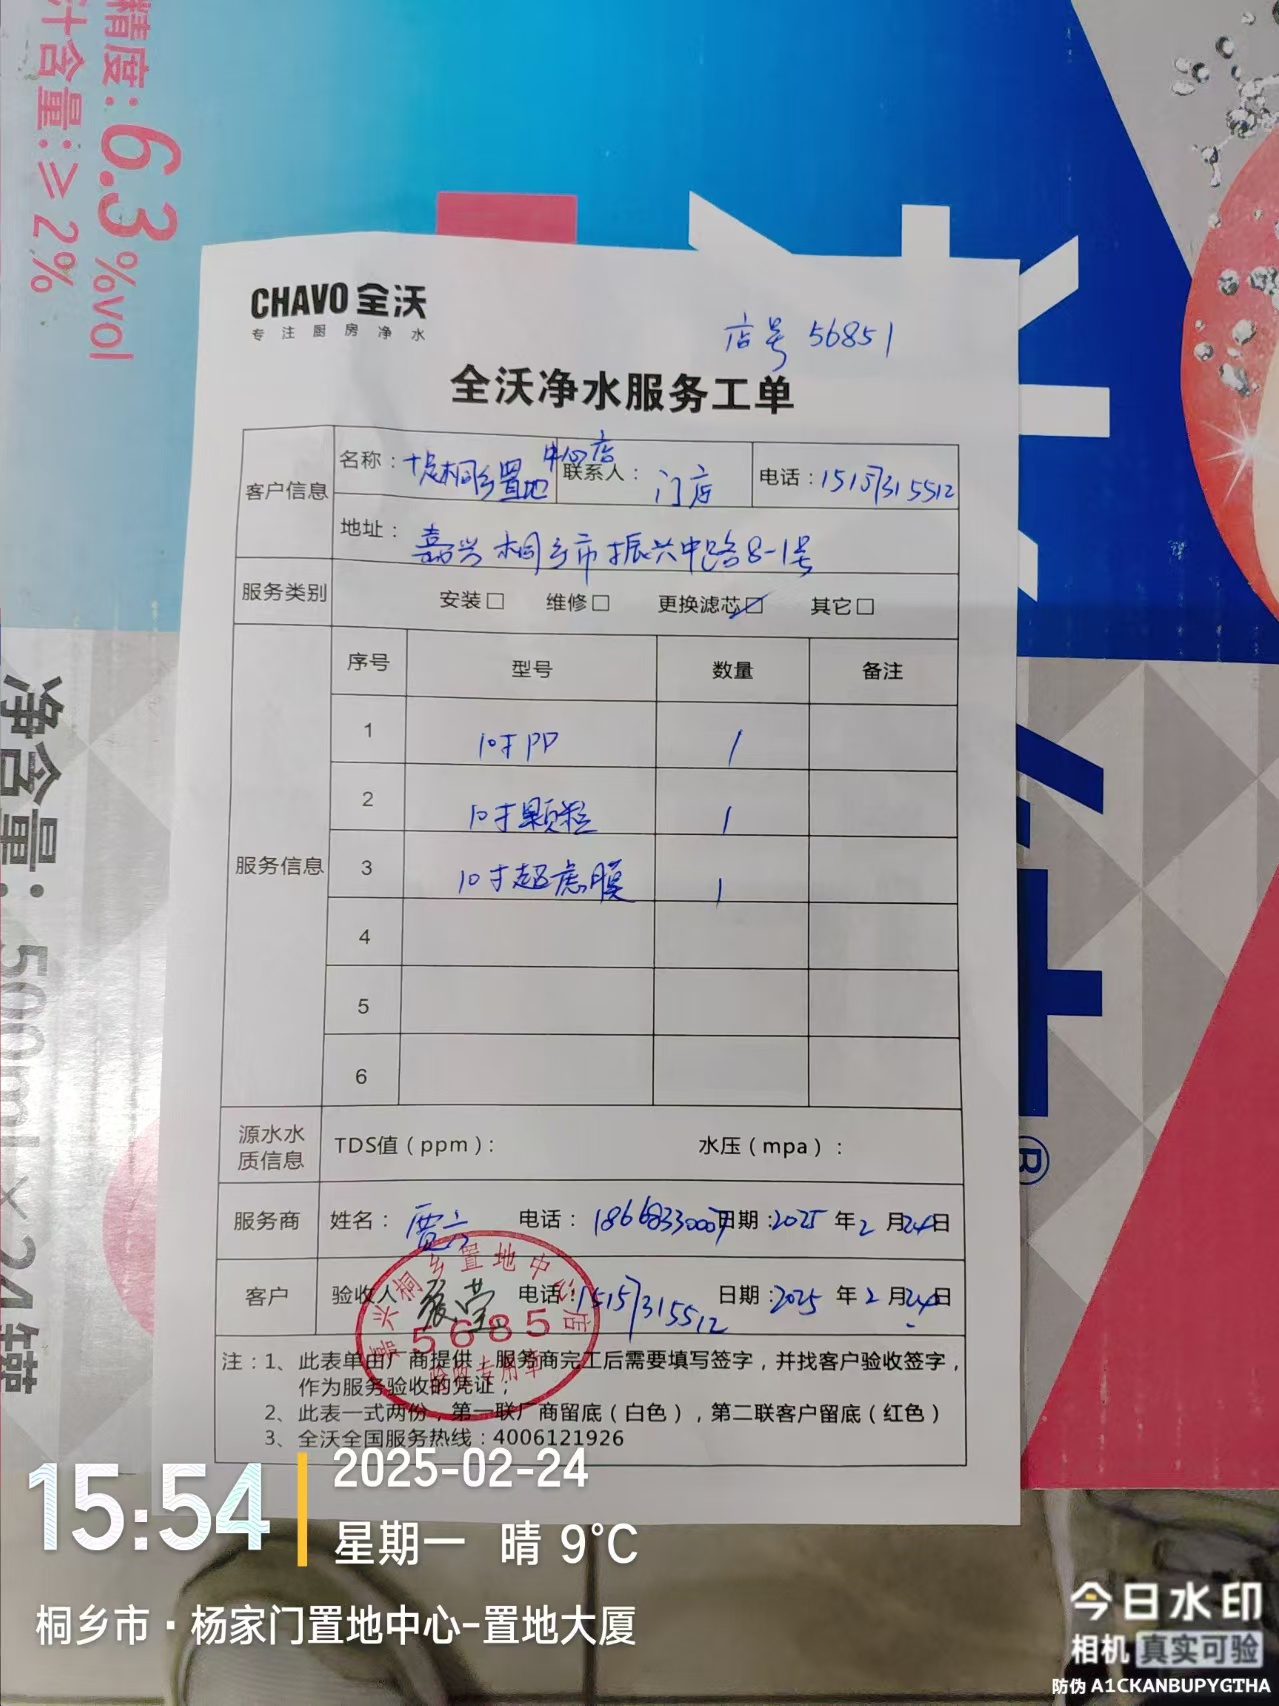 精度:6.3%vol
汁含量:≥2%
净含量:500ml×24罐
CHAVO 全沃
专注厨房净水
店号 56851
全沃净水服务工单
客户信息
名称: 桐乡置地中心店
联系人: 门店
电话:15157315512
地址: 嘉兴桐乡市振兴中路8-1号
服务类别
安装□ 维修□ 更换滤芯☑ 其它□
服务信息
序号 型号 数量 备注
1 10寸PP 1
2 10寸颗粒 1
3 10寸超虑膜 1
4
5
6
源水水质信息
TDS值(ppm): 水压(mpa):
服务商 姓名: 电话: 18668330007 日期:2025年2月24日
客户 验收人 电话:15157315512 日期:2025年2月24日
嘉兴桐乡置地中心店
5685
验收专用章
注:1、此表单由厂商提供,服务商完工后需要填写签字,并找客户验收签字,
作为服务验收的凭证;
2、此表一式两份,第一联厂商留底(白色),第二联客户留底(红色)
3、全沃全国服务热线:4006121926
®
15:54
2025-02-24
星期一 晴 9°C
桐乡市·杨家门置地中心-置地大厦
今日水印
相机 真实可验
防伪 A1CKANBUPYGTHA